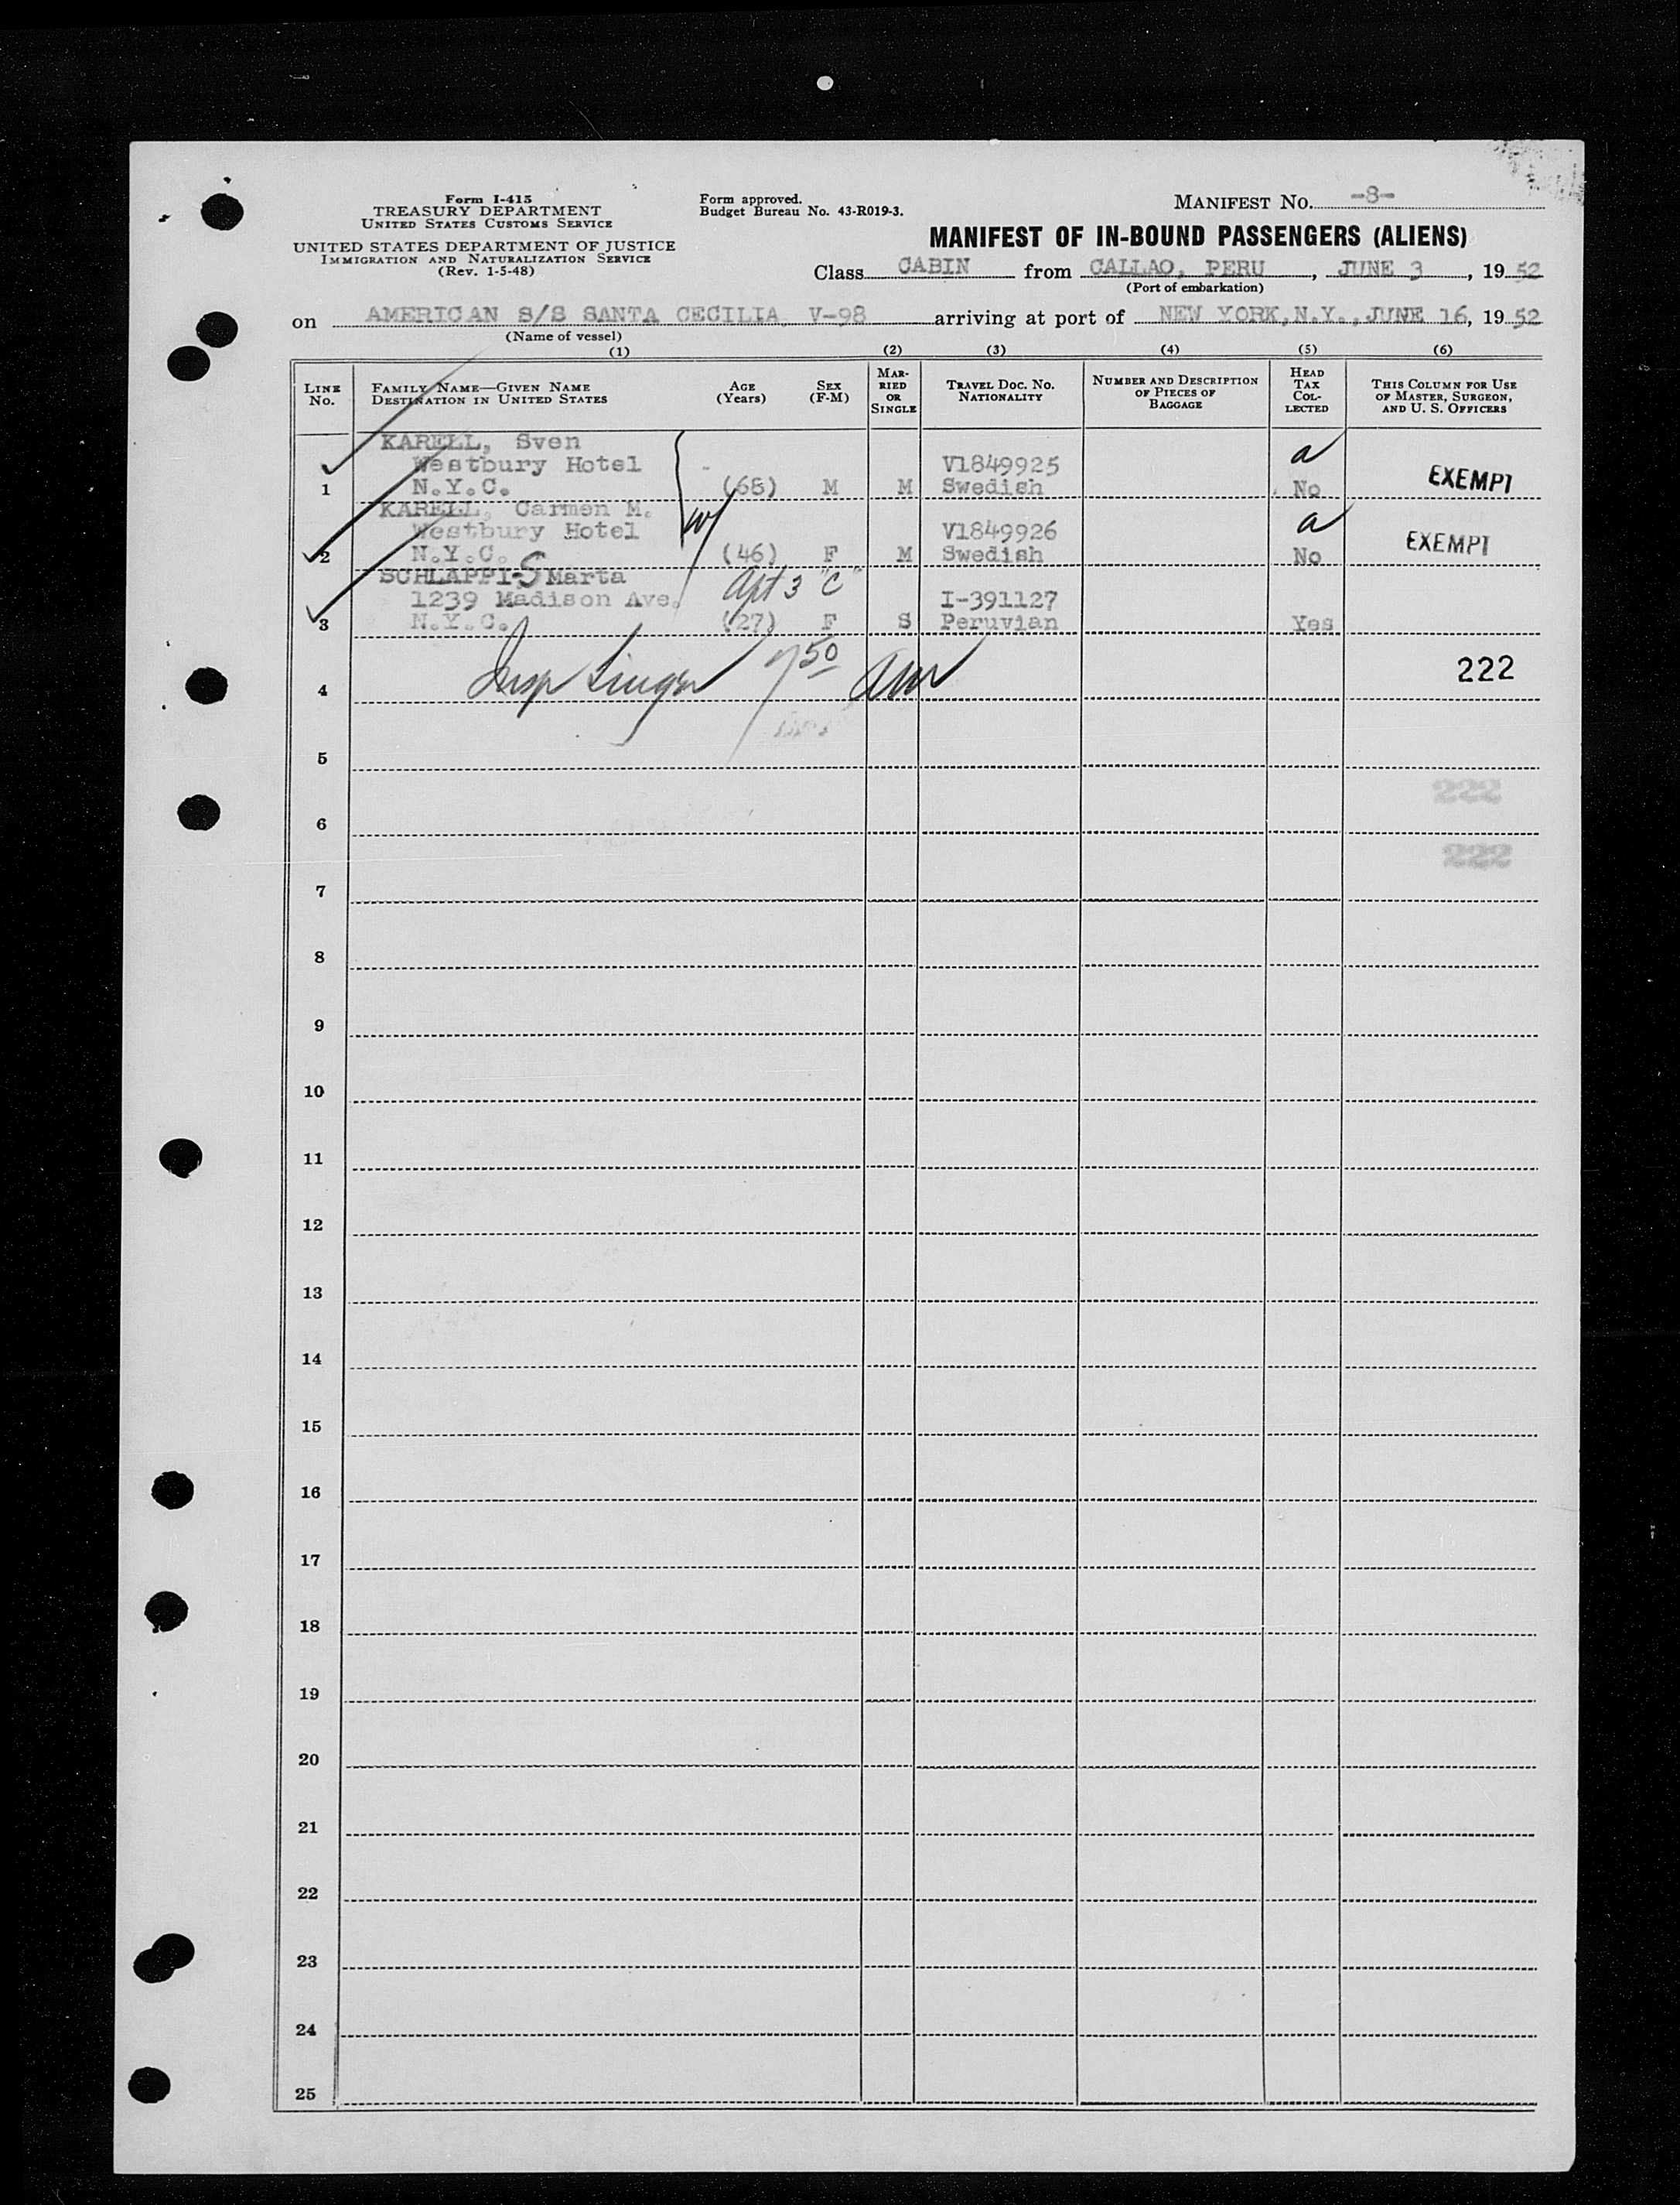 Form I-415
TREASURY DEPARTMENT
UNITED STATES CUSTOMS SERVICE
UNITED STATES DEPARTMENT OF JUSTICE
IMMIGRATION AND NATURALIZATION SERVICE
(Rev. 1-5-48)
Form approved.
Budget Bureau No. 43-R019-3.
MANIFEST NO. -8-
MANIFEST OF IN-BOUND PASSENGERS (ALIENS)
Class CABIN from CALLAO, PERU, JUNE 3, 1952
(Port of embarkation)
on AMERICAN S/S SANTA CECILIA V-98 arriving at port of NEW YORK, N.Y., JUNE 16, 1952
(Name of vessel)
(1) (2) (3) (4) (5) (6)
LINE NO.
FAMILY NAME—GIVEN NAME
DESTINATION IN UNITED STATES
AGE (Years)
SEX (F-M)
MARRIED OR SINGLE
TRAVEL DOC. NO.
NATIONALITY
NUMBER AND DESCRIPTION OF PIECES OF BAGGAGE
HEAD TAX COLLECTED
THIS COLUMN FOR USE OF MASTER, SURGEON, AND U. S. OFFICERS
KARELL, Sven
Westbury Hotel V1849925 a
1 N.Y.C. (68) M M Swedish No EXEMPT
KARELL, Carmen M.
Westbury Hotel V1849926 a
2 N.Y.C. (46) F M Swedish No EXEMPT
SCHLAPPI-S Marta Apt 3 "C"
1239 Madison Ave. I-391127
3 N.Y.C. (27) F S Peruvian Yes
4 Insp Singer 750 222
5
222
6
222
7
8
9
10
11
12
13
14
15
16
17
18
19
20
21
22
23
24
25